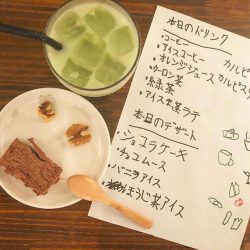 本日のドリンク
・コーヒー
・アイスコーヒー カルピ
・オレンジジュース カルピス
・ウーロン茶
・緑茶
・アイス抹茶ラテ
本日のデザート
・ショコラケーキ
・チョコムース
・バニラアイス
・ほうじ茶アイス